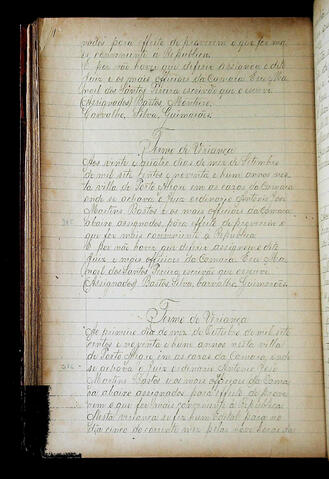 nados para effeito de proverem o que for ma
is conveniente a Republica.
E por não haver que deferir assignou o dito
Juiz e os mais officiaes da Camara. Eu Ma
noel dos Santos escrivão que o escrevi.
(Assignados) Bastos, Monteiro,
Carvalho, Silva, Guimarães.
Termo de Vriança
Aos vinte e quatro dias do mez de Setembro
de mil sete sentos e noventa e hum annos nes
ta villa de Porto Alegre em as cazas da Camara
onde se achava o Juiz ordinario Antonio José
Martins Bastos e os mais officiaes da Camara
abaixo assignados, para effeito de proverem o
que for mais conveniente a Republica.
E por não haver que deferir assignou o dito
Juiz e mais officiaes da Camara. Eu Ma
noel dos Santos escrivão que escrevi.
(Assignados) Bastos, Silva, Carvalho, Guimarães.
Termo de Vriança
Ao primeiro dia do mez de Outubro de mil sete
sentos e noventa e hum annos nesta villa
de Porto Alegre, em as cazas da Camara, onde
se achava o Juiz ordinario Antonio José
Martins Bastos e os mais officiaes da Cama
ra abaixo assignados para effeito de prove
rem o que for mais conveniente a Republica.
Nesta veriança se fez hum Edital para no
dia cinco do corrente mez pelas nove horas do